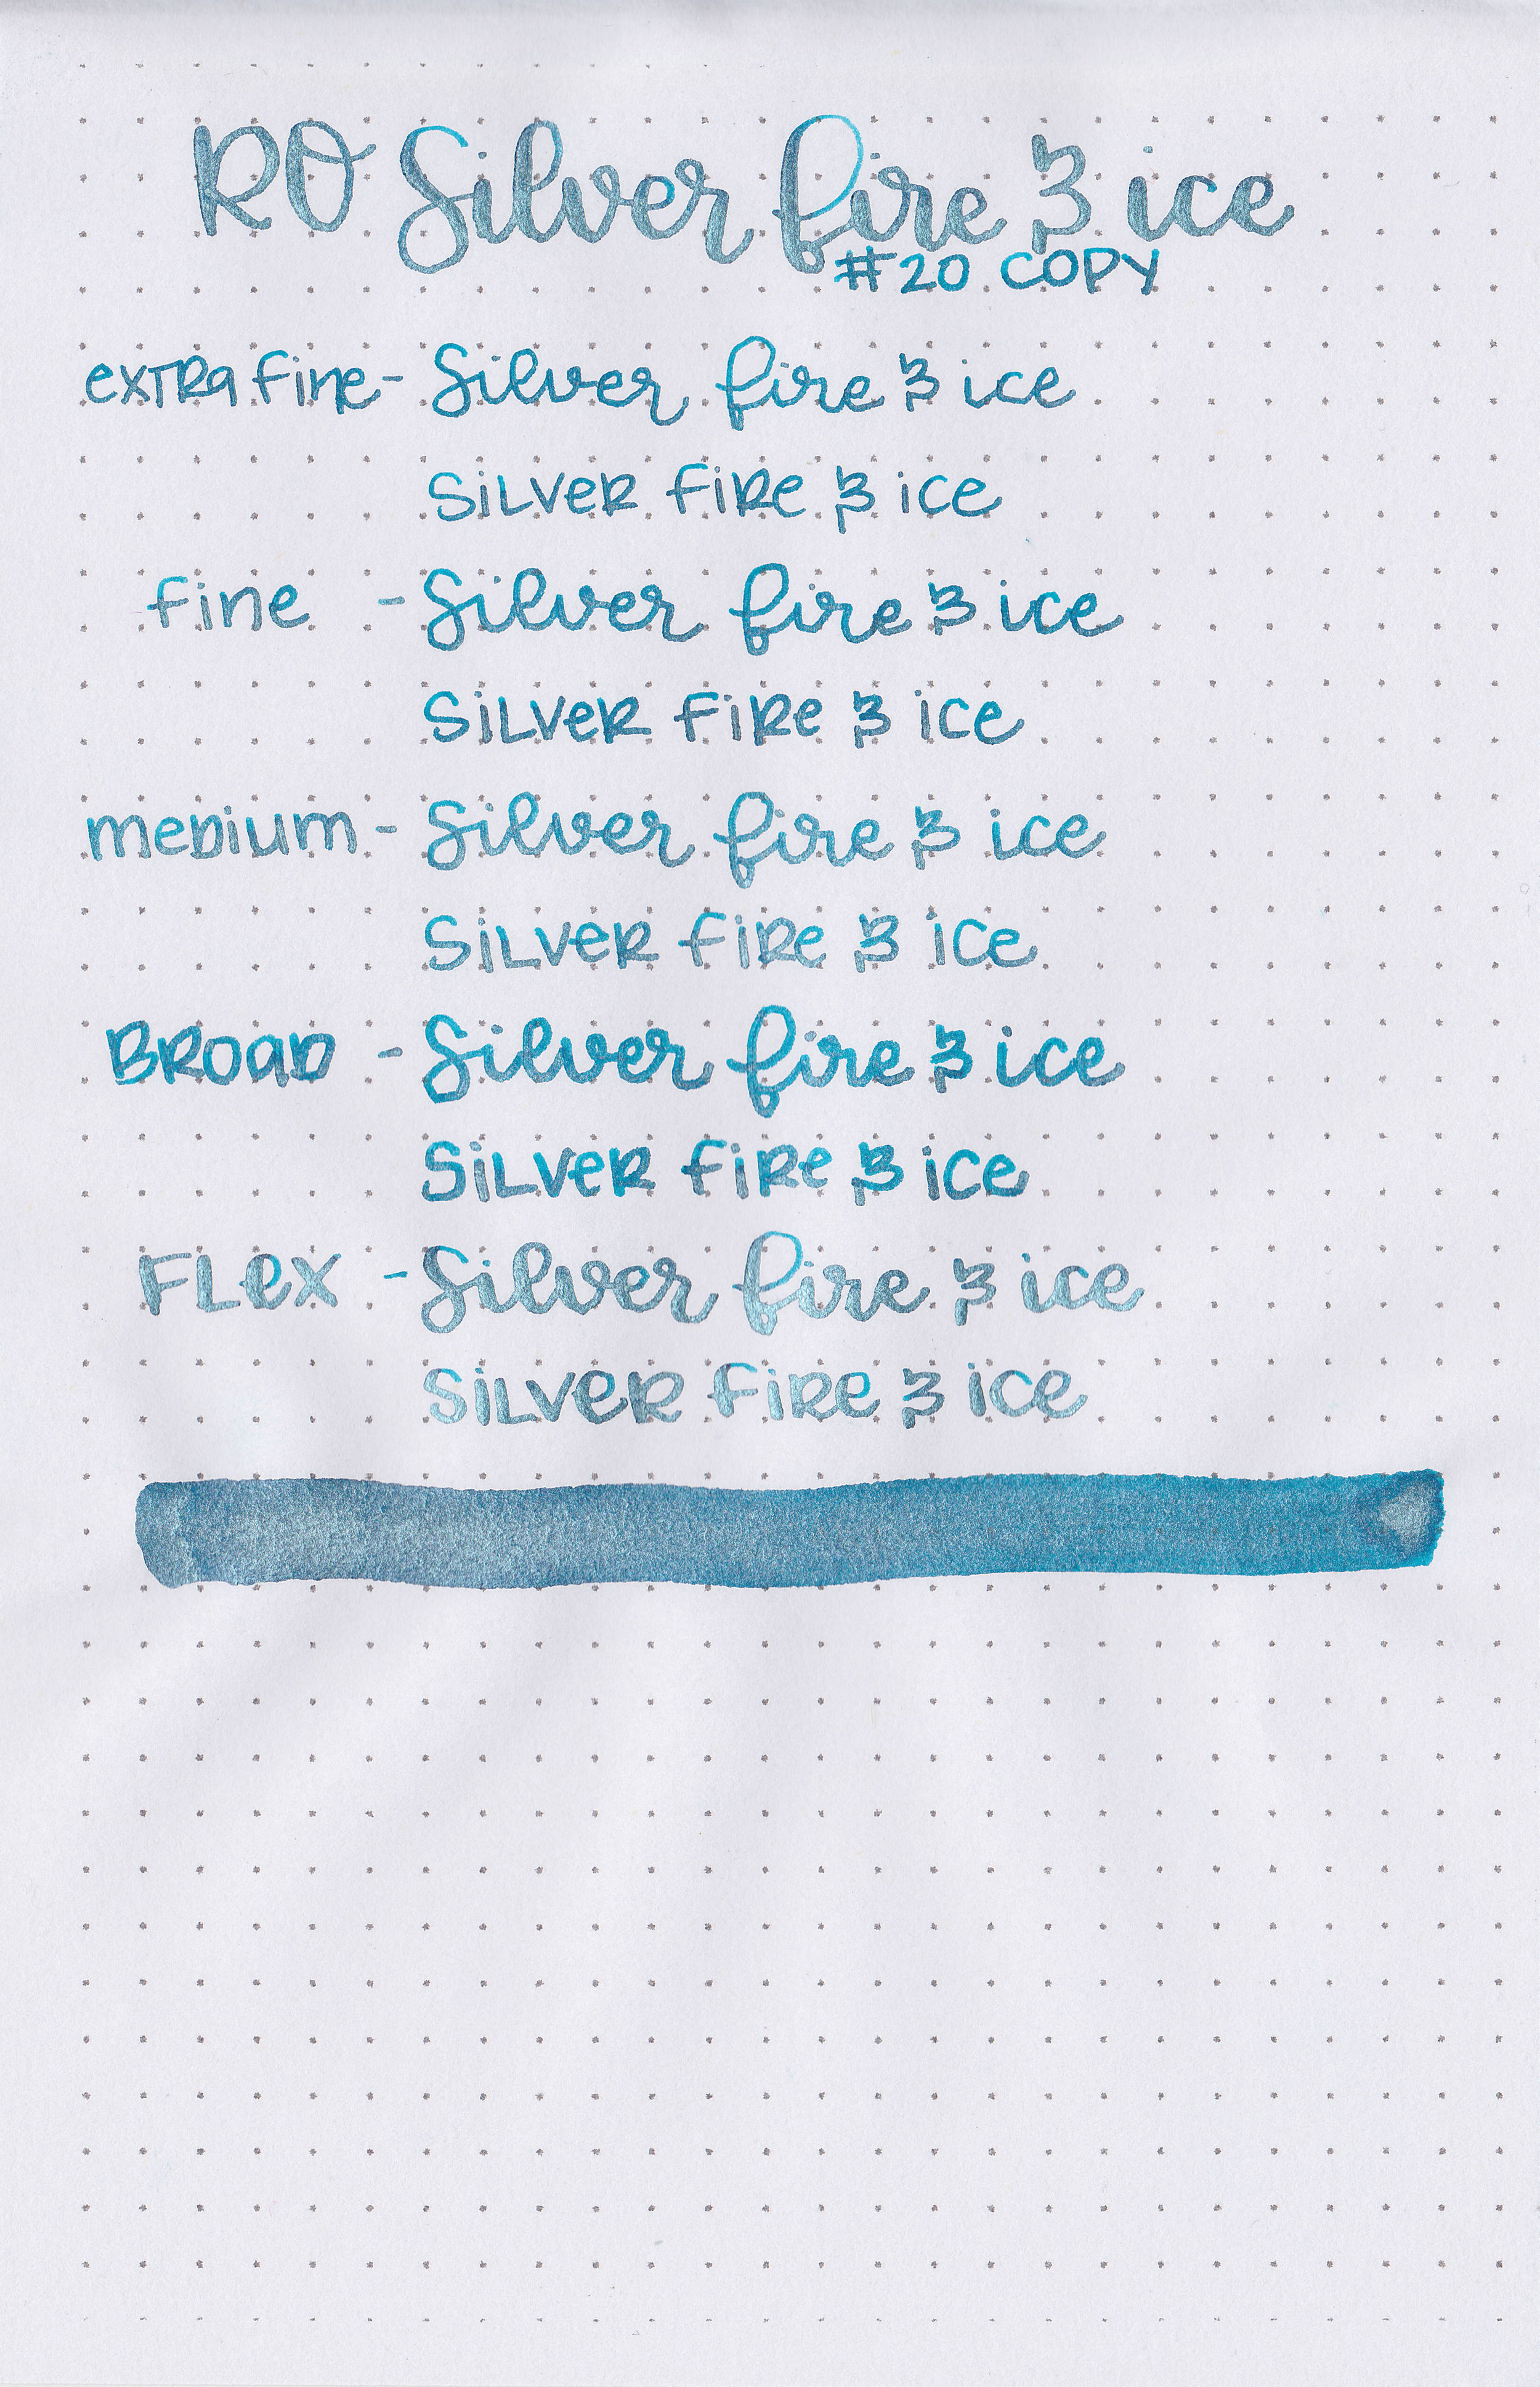 RO Silver fire & ice
#20 COPY
extra fine - Silver fire & ice
Silver fire & ice
fine - Silver fire & ice
Silver fire & ice
medium - Silver fire & ice
Silver fire & ice
Broad - Silver fire & ice
Silver fire & ice
Flex - Silver fire & ice
Silver fire & ice